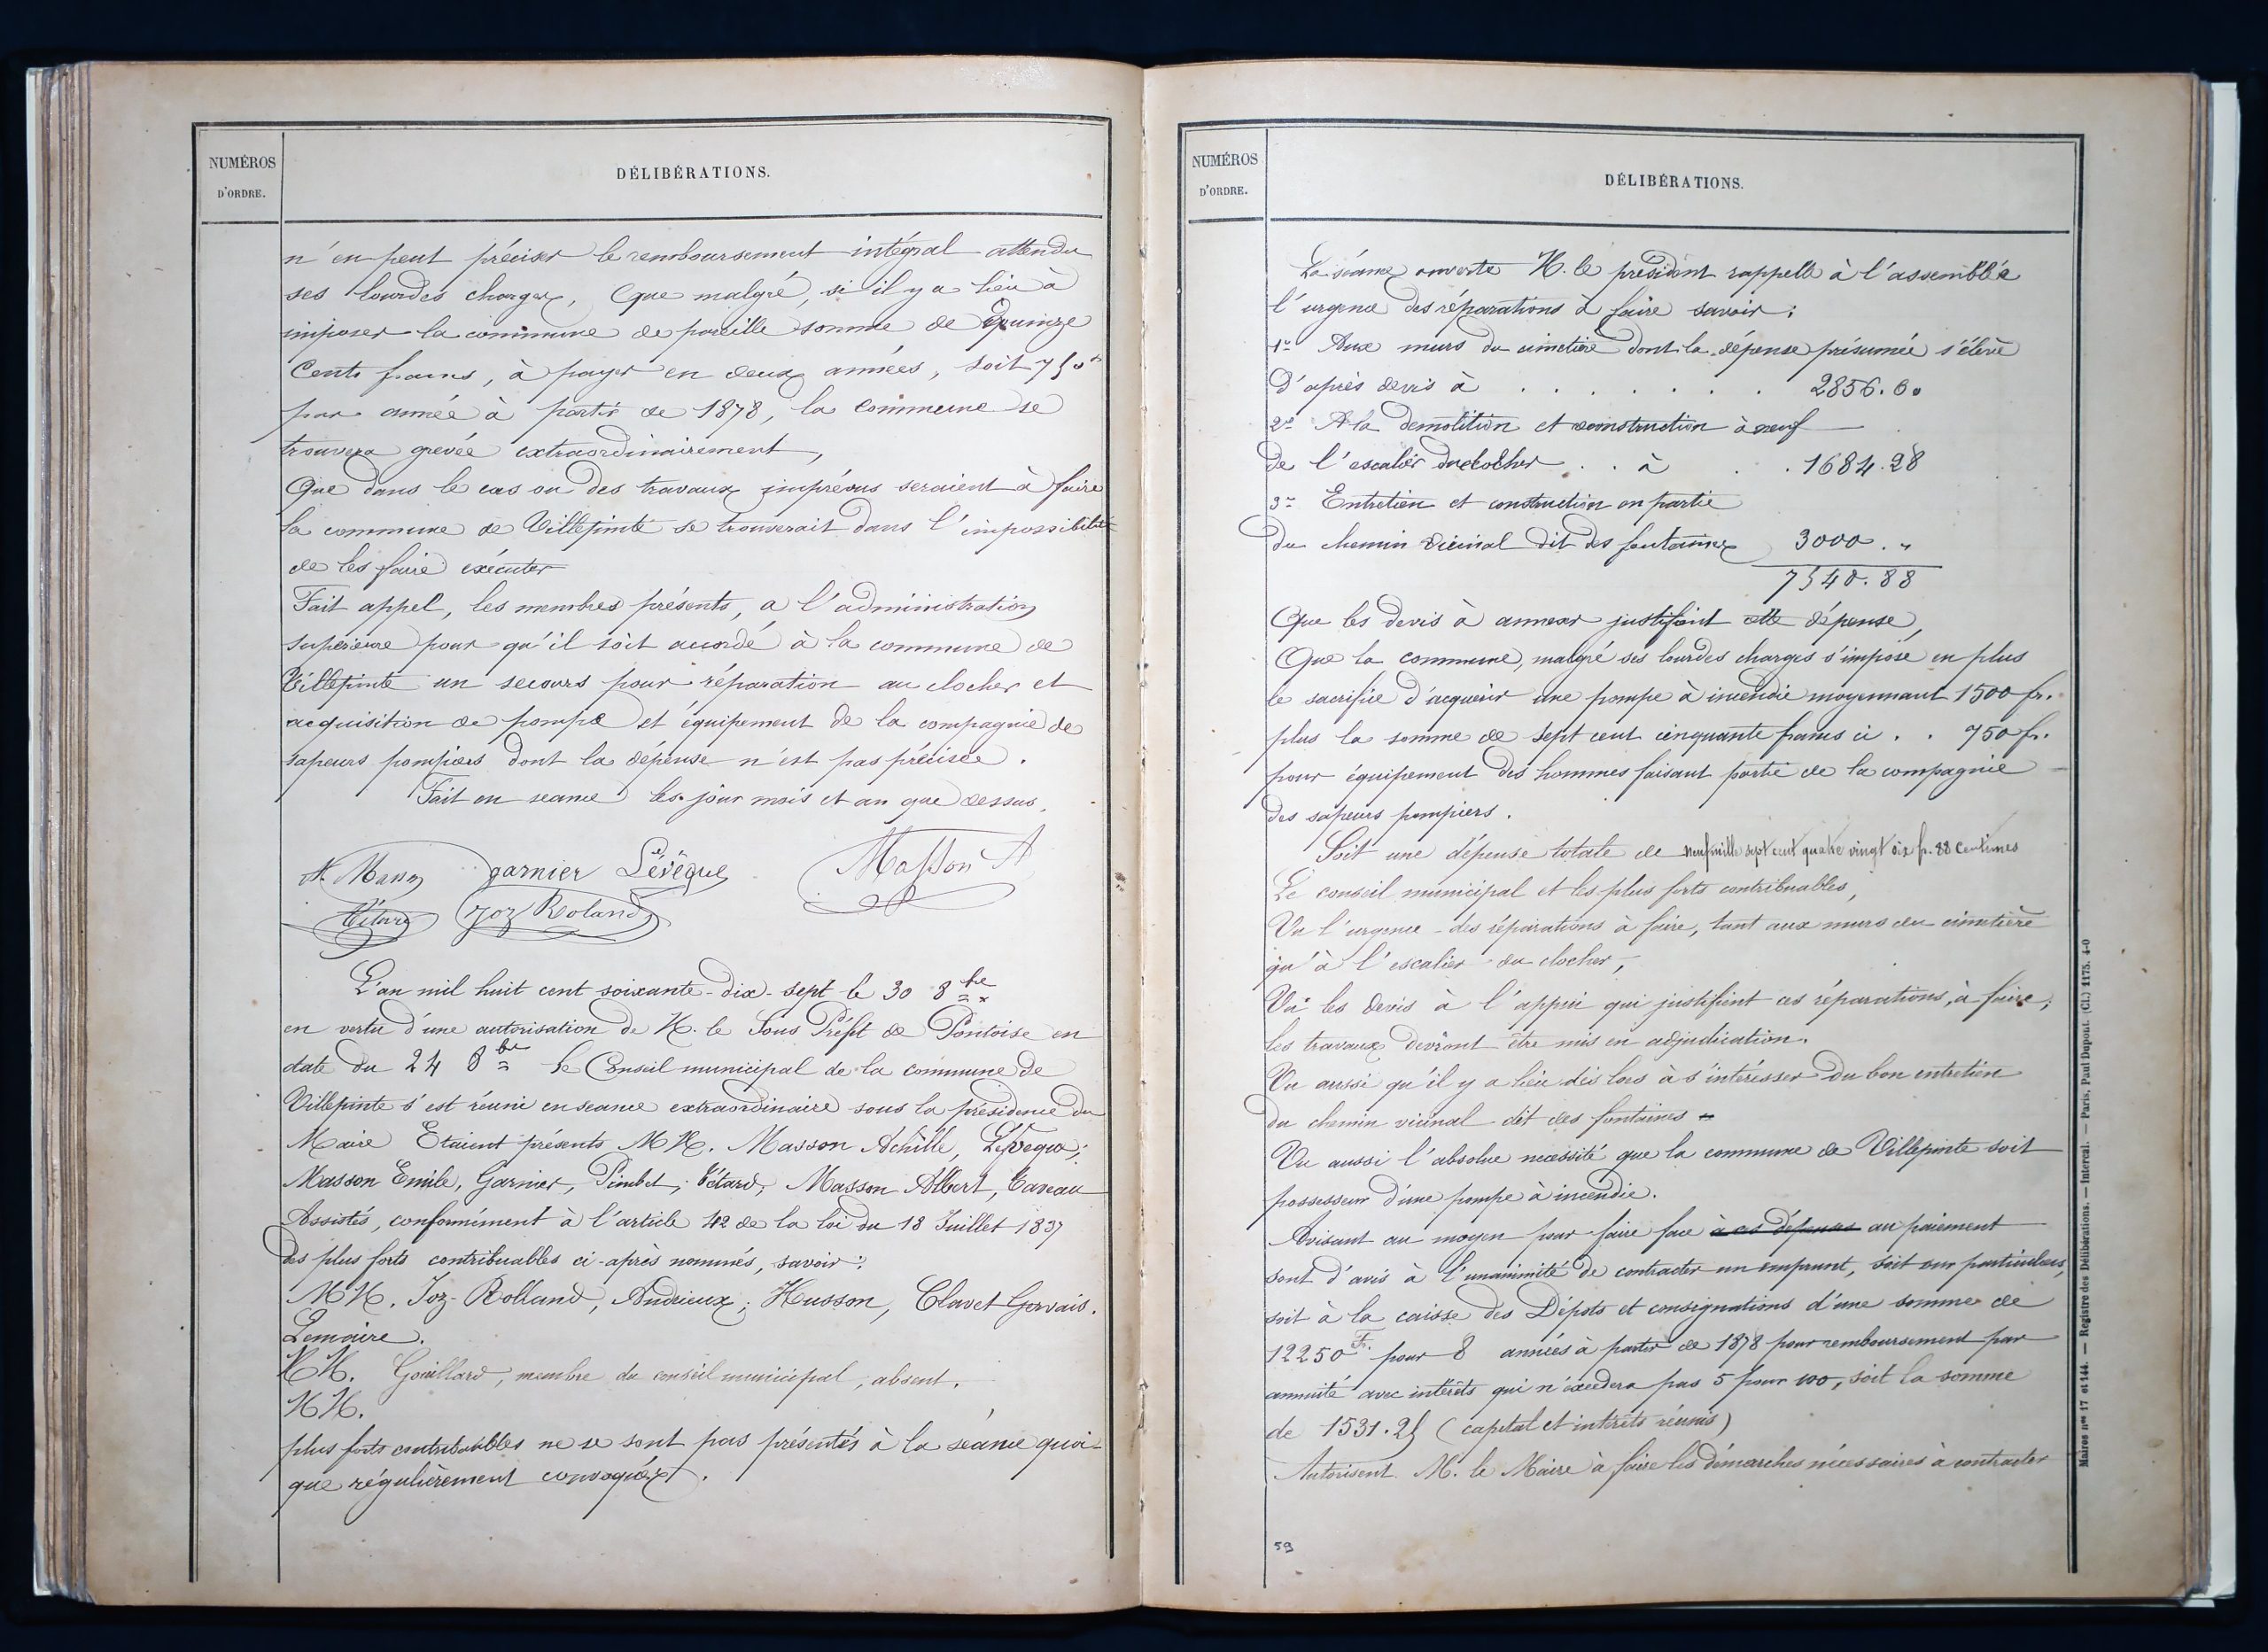 NUMÉROS
D'ORDRE.
DÉLIBÉRATIONS.
n'en peut préciser le remboursement intégral attendu
ses lourdes charges, Que malgré, si il y a lieu à
imposer la commune de pareille somme de Quinze
Cents francs, à payer en deux années, soit 750 f
par année à partir de 1878, la commune se
trouvera grevée extraordinairement,
Que dans le cas ou des travaux imprévus seraient à faire
la commune de Villepinte se trouverait dans l'impossibilité
de les faire exécuter
Fait appel, les membres présents, a l'administration
supérieure pour qu'il soit accordé à la commune de
Villepinte un secours pour réparation au clocher et
acquisition de pompe et équipement de la compagnie de
sapeurs pompiers dont la dépense n'est pas précisée.
Fait en seance les jour mois et an que dessus.
garnier Lévêque Masson A
Vétard Joz Roland
L'an mil huit cent soixante-dix-sept le 30 8bre
en vertu d'une autorisation de M. le Sous Préfet de Pontoise en
date du 24 8bre le Conseil municipal de la commune de
Villepinte s'est réuni en seance extraordinaire sous la présidence du
Maire Etaient présents MM. Masson Achille, Levêque,
Masson Emile, Garnier, Vétard, Masson Albert,
Assistés, conformément à l'article 42 de la loi du 18 Juillet 1837
des plus forts contribuables ci-après nommés, savoir:
MM. Joz-Rolland, Andrieux, Husson, Clavet Gervais.
Lemaire.
MM. Gouillard, membre du conseil municipal, absent.
MM.
plus forts contribuables ne se sont pas présentés à la séance quoi-
que régulièrement convoqués.
NUMÉROS
D'ORDRE.
DÉLIBÉRATIONS.
La séance ouverte M. le président rappelle à l'assemblée
l'urgence des réparations à faire savoir:
1° Aux murs du cimetière dont la dépense présumée s'élève
d'après devis à . . . . . . . 2856.60
2° A la démolition et reconstruction à neuf
de l'escalier du clocher . . à . . 1684.28
3° Entretien et construction en partie
du chemin vicinal dit des fontaines 3000. "
7540.88
Que les devis à annexer justifient cette dépense,
Que la commune, malgré ses lourdes charges s'impose en plus
le sacrifice d'acquérir une pompe à incendie moyennant 1500 fr.
plus la somme de sept cent cinquante francs ci . . 750 fr.
pour équipement des hommes faisant partie de la compagnie
des sapeurs pompiers.
Soit une dépense totale de neuf mille sept cent quatre vingt dix fr. 88 Centimes
Le conseil municipal et les plus forts contribuables,
Vu l'urgence des réparations à faire, tant aux murs du cimetière
qu'à l'escalier du clocher,
Vu les devis à l'appui qui justifient ces réparations, à faire,
les travaux devront être mis en adjudication.
Vu aussi qu'il y a lieu dès lors à s'intéresser du bon entretien
du chemin vicinal dit des fontaines
Vu aussi l'absolue nécessité que la commune de Villepinte soit
possesseur d'une pompe à incendie.
Avisant au moyen pour faire face à ces dépenses au paiement
sont d'avis à l'unanimité de contracter un emprunt, soit aux particuliers,
soit à la caisse des Dépots et consignations d'une somme de
12250 Fr. pour 8 années à partir de 1878 pour remboursement par
annuité avec intérêts qui n'excedera pas 5 pour 100, soit la somme
de 1531.25 (capital et intérêts réunis)
Autorisent M. le Maire à faire les démarches nécessaires à contracter
59
Mairies nos 17 et 144. — Registre des Délibérations. — Intercal. — Paris, Paul Dupont. (Cl.) 1175. 4-0